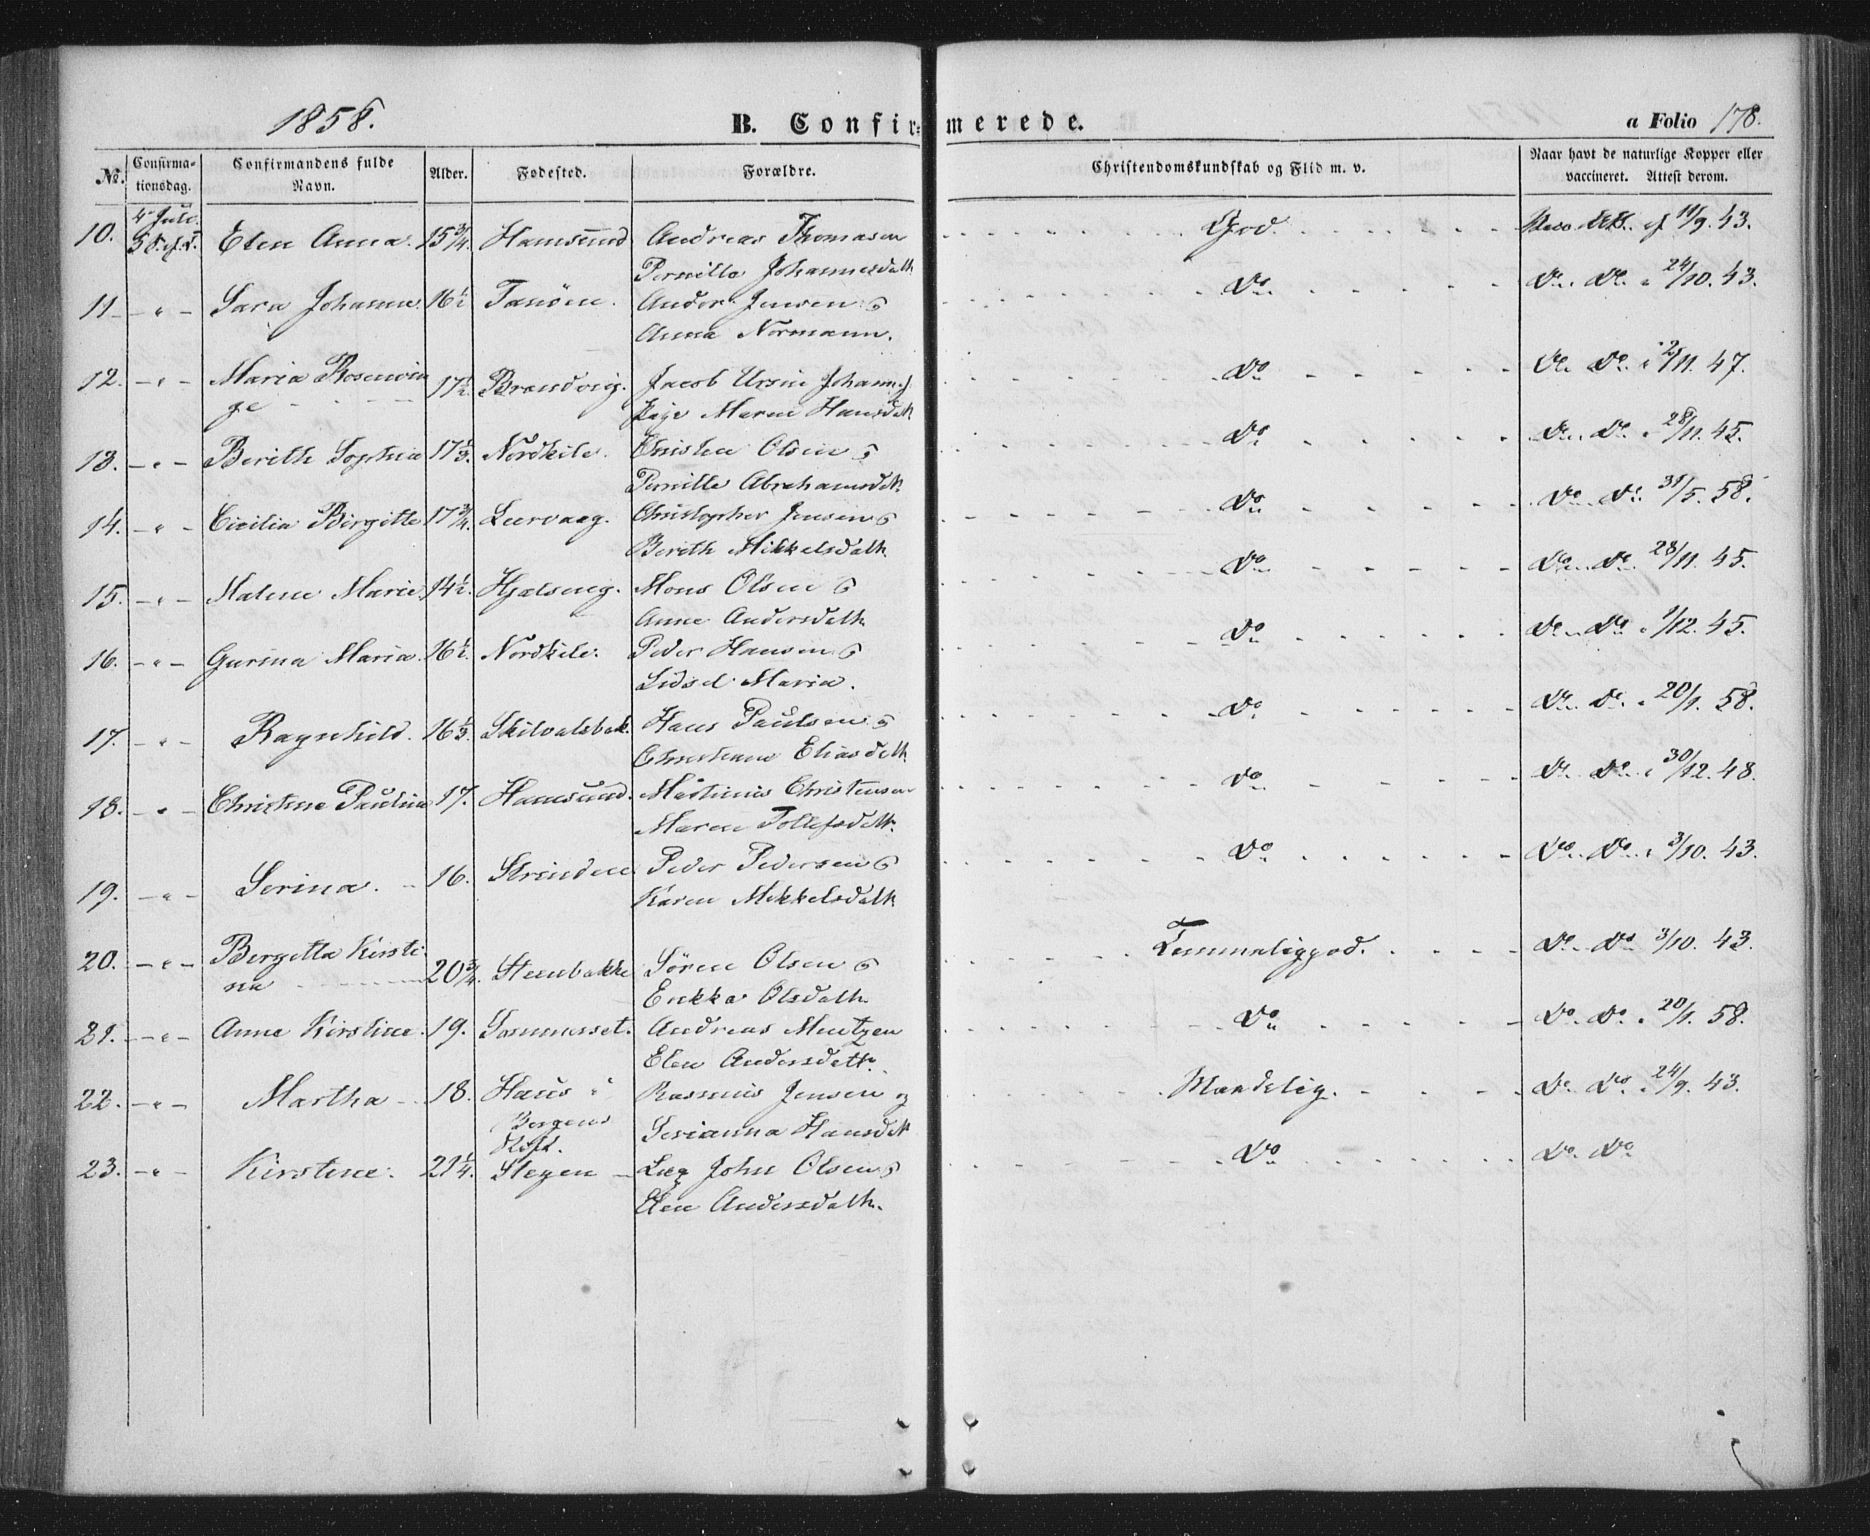 1858. B. Confirmerede. a Folio 178.
No. Confirmationsdag. Confirmandens fulde Navn. Alder. Fødested. Forældre. Christendomskundskab og Flid m. v. Naar havt de naturlige Kopper eller vaccineret. Attest derom.
10. 4 Juli Elen Anna. 15 3/4. Hamsund Andreas Thomasen God. 11/9. 43.
Pernille Johannesdatt
11 - " - Sara Johanna. 16 1/2 Tanöen. Anders Jensen &
Anna Normann. Do. Do. Do. " 24/10. 43.
12. - " - Maria Rosenvin 17 1/2. Brandvig. Jacob Ursin Johann Do Do Do " 2/11. 47.
ge Maren Hansdatt
13. - " - Berith Sophia 17 1/3. Nordkile. Christen Olsen & Do Do. Do. " 28/11. 45.
Pernille Abrahamsdatt.
14. - " - Cicilia Birgitte 17 3/4. Leervaag. Christopher Jensen & Do Do Do. 31/5. 58.
Berith Mikkelsdatt.
15. - " - Malene Marie. 14 1/2. Hjælseng. Mons Olsen & Do Do. Do. 28/11. 45.
Anne Andersdatt.
16. - " - Gurina Maria. 16 1/2. Nordkile. Peder Hansen & Do Do Do " 1/12. 45.
Sidsel Maria.
17. - " - Ragnhild. 16 1/3. Skilvalsbak. Hans Paulsen & Do Do. Do. " 20/1. 58.
Christiane Eliasdatt.
18. - " - Christine Paulina 17. Hamsund. Martinus Christensen Do Do Do " 30/12. 48.
Maren Tollefsdatt.
19. - " - Serina. 16. Strinden Peder Pedersen & Do Do. Do. " 3/10. 43.
Karen Mikkelsdatt
20. - " - Bergetta Kirsti- Temmeliggod. Do. Do 3/10. 43.
na 20 3/4. Steenbakke Sören Olsen &
Erikka Olsdatt.
21. - " - Anne Kirstine. 19. Sommerset. Andreas Mentzen Do Do. Do. " 20/1. 58.
Elen Andersdatt.
22. - " - Martha 18. Haus i Rasmus Jensen og Maadelig. Do Do. 24/9. 43.
Bergens Serianna Hansdatt
Stift.
23. - " - Kirstine. 21 1/4. Stegen John Olsen & Do Do. Do
Elen Andersdatt.